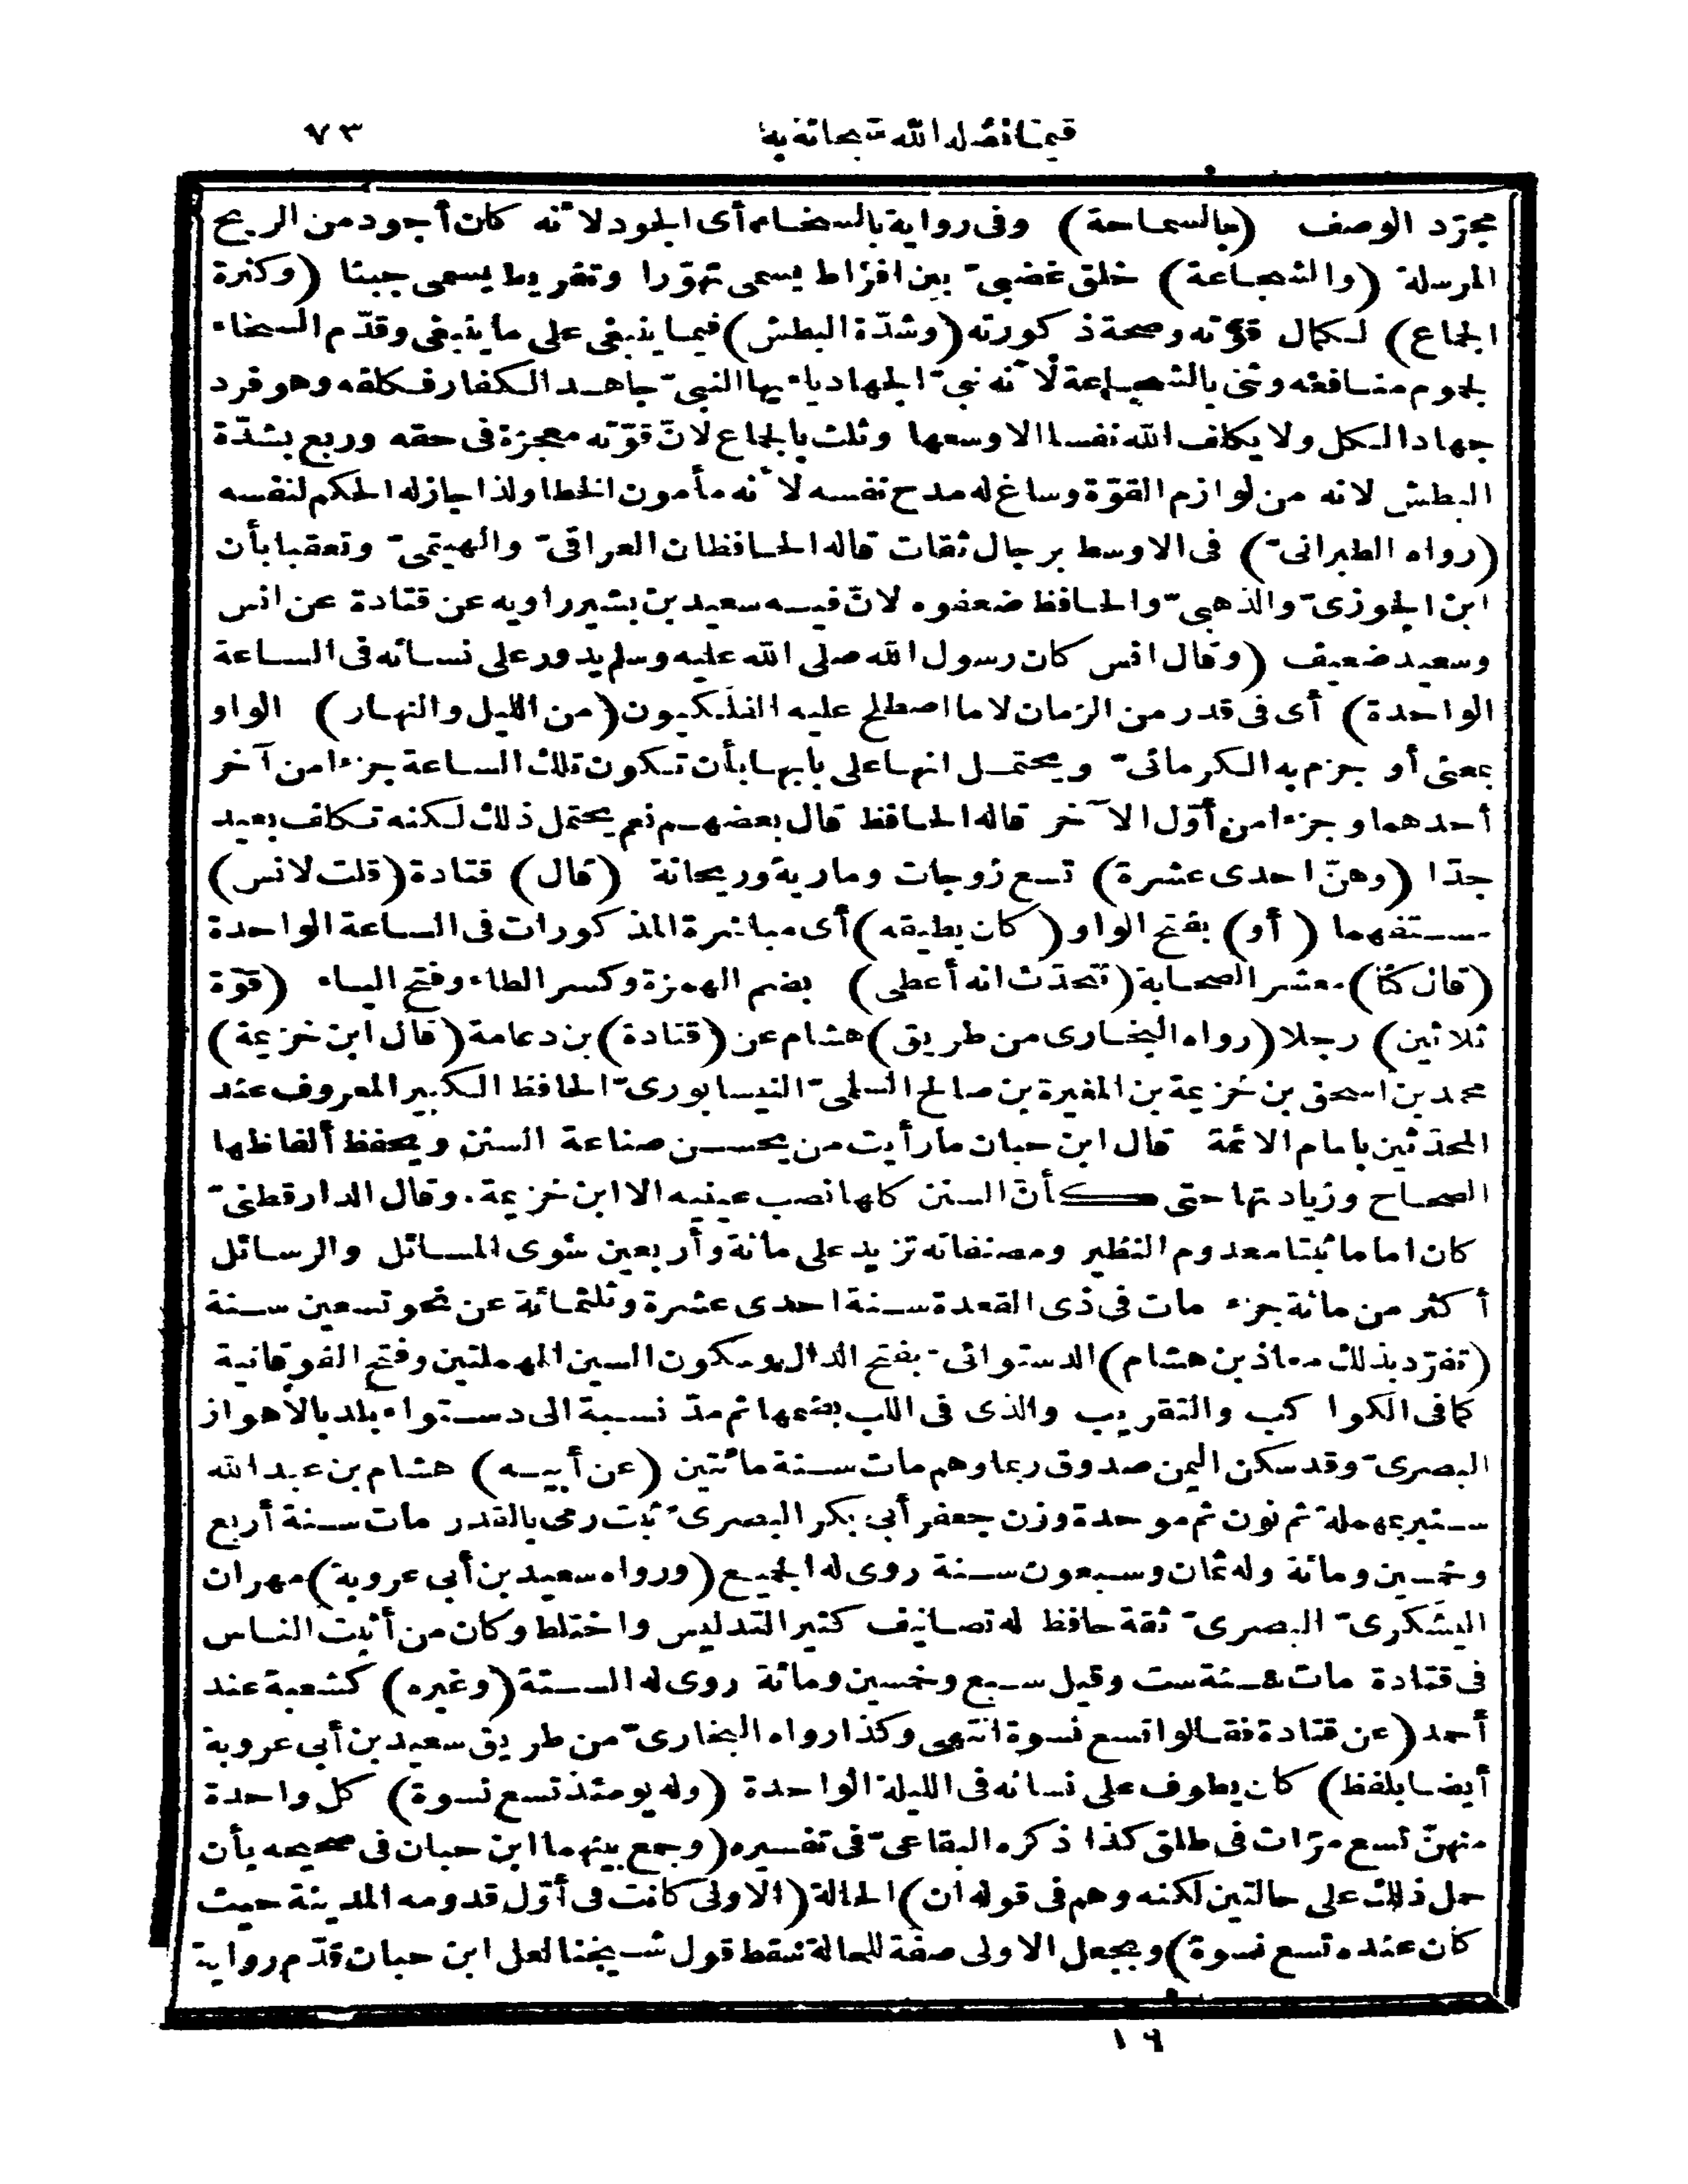 فيما فضله الله سبحانه به ٧٣
مجرّد الوصف (بالسماحة) وفى رواية بالسخاء أى الجود لأنه كان أجود من الريح
المرسلة (والشجاعة) خلق غضبىّ بين افراط يسمى تهوّرا وتفريط يسمى جبنا (وكثرة
الجماع) لكمال قوّته وصحة ذكورته (وشدّة البطش) فيما ينبغى على ما ينبغى وقدّم السخاء
لجموم منافعه وثنى بالشجاعة لأنه نبىّ الجهاد ياءيها النبىّ جاهد الكفار فكلفه وهو فرد
جهاد الكل ولا يكلف الله نفسا الا وسعها وثلث بالجماع لانّ قوّته معجزة فى حقه وربع بشدّة
البطش لانه من لوازم القوّة وساغ له مدح نفسه لأنه مأمون الخطا ولذا جاز له الحكم لنفسه
(رواه الطبرانىّ) فى الاوسط برجال ثقات قاله الحافظان العراقىّ والهيتمىّ وتعقبا بأن
ابن الجوزىّ والذهبىّ والحافظ ضعفوه لانّ فيه سعيد بن بشير راويه عن قتادة عن انس
وسعيد ضعيف (وقال انس كان رسول الله صلى الله عليه وسلم يدور على نسائه فى الساعة
الواحدة) أى فى قدر من الزمان لا ما اصطلح عليه الفلكيون (من الليل والنهار) الواو
بمعنى أو جزم به الكرمانىّ ويحتمل انها على بابها بأن تكون تلك الساعة جزءا من آخر
أحدهما وجزءا من أوّل الآخر قاله الحافظ قال بعضهم نعم يحتمل ذلك لكنه تكلف بعيد
جدّا (وهنّ احدى عشرة) تسع زوجات ومارية وريحانة (قال) قتادة (قلت لانس)
مستفهما (أو) بفتح الواو (كان يطيقه) أى مباشرة المذكورات فى الساعة الواحدة
(قال كنا) معشر الصحابة (نتحدّث انه أعطى) بضم الهمزة وكسر الطاء وفتح الياء (قوّة
ثلاثين) رجلا (رواه البخارى من طريق) هشام عن (قتادة) بن دعامة (قال ابن خزيمة)
محمد بن اسحق بن خزيمة بن المغيرة بن صالح السلمىّ النيسابورىّ الحافظ الكبير المعروف عند
المحدّثين بامام الائمة قال ابن حبان ما رأيت من يحسن صناعة السنن ويحفظ ألفاظها
الصحاح وزيادتها حتى كأنّ السنن كلها نصب عينيه الا ابن خزيمة. وقال الدارقطنىّ
كان اماما ثبتا معدوم النظير ومصنفاته تزيد على مائة وأربعين سوى المسائل والرسائل
أكثر من مائة جزء مات فى ذى القعدة سنة احدى عشرة وثلثمائة عن نحو تسعين سنة
(تفرّد بذلك معاذ بن هشام) الدستوائىّ بفتح الدال وسكون السين المهملتين وفتح الفوقانية
كما فى الكواكب والتقريب والذى فى اللب بضمها ثم مدّ نسبة الى دستواء بلد بالأهواز
البصرىّ وقد سكن اليمن صدوق ربما وهم مات سنة مائتين (عن أبيه) هشام بن عبد الله
سنبر بمهملة ثم نون ثم موحدة وزن جعفر أبى بكر البصرىّ ثبت رمى بالقدر مات سنة أربع
وخمسين ومائة وله ثمان وسبعون سنة روى له الجميع (ورواه سعيد بن أبى عروبة) مهران
اليشكرىّ البصرىّ ثقة حافظ له تصانيف كثير التدليس واختلط وكان من أثبت الناس
فى قتادة مات سنة ست وقيل سبع وخمسين ومائة روى له الستة (وغيره) كشعبة عند
أحمد (عن قتادة فقالوا تسع نسوة انتهى وكذا رواه البخارىّ من طريق سعيد بن أبى عروبة
أيضا بلفظ) كان يطوف على نسائه فى الليلة الواحدة (وله يومئذ تسع نسوة) كل واحدة
منهنّ تسع مرّات فى طلق كذا ذكره البقاعىّ فى تفسيره (وجمع بينهما ابن حبان فى صحيحه بأن
حمل ذلك على حالتين لكنه وهم فى قوله ان) الحالة (الاولى كانت فى أوّل قدومه المدينة حيث
كان عنده تسع نسوة) وبجعل الاولى صفة للحالة سقط قول شيخنا لعل ابن حبان قدّم رواية
١٩